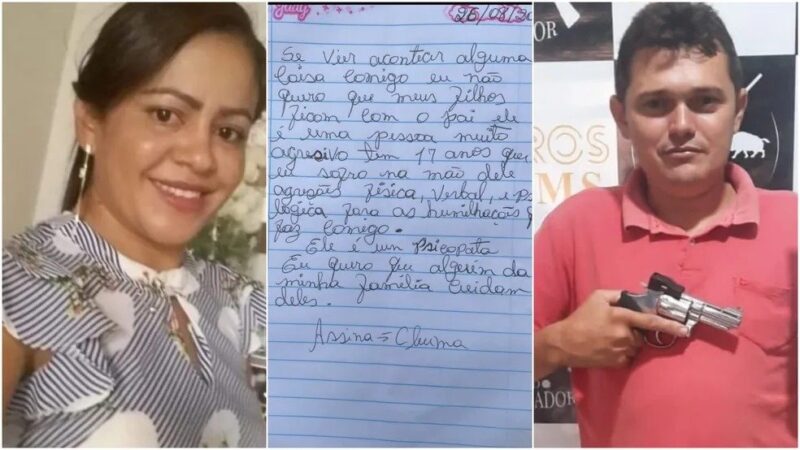 26/08/20
Se vier acontecer alguma
Coisa Comigo eu não
quero que meus filhos
ficam com o pai ele
é uma pessoa muito
agresivo tem 17 anos que
eu sofro na mão dele
agrações física, verbal, e ps
lógica fora as humilhações q
faz comigo.
Ele é um Psicopata
Eu quero que alguém da
minha família Cuidam
deles.
Assina =
DOR
ROS
MS
ADOR